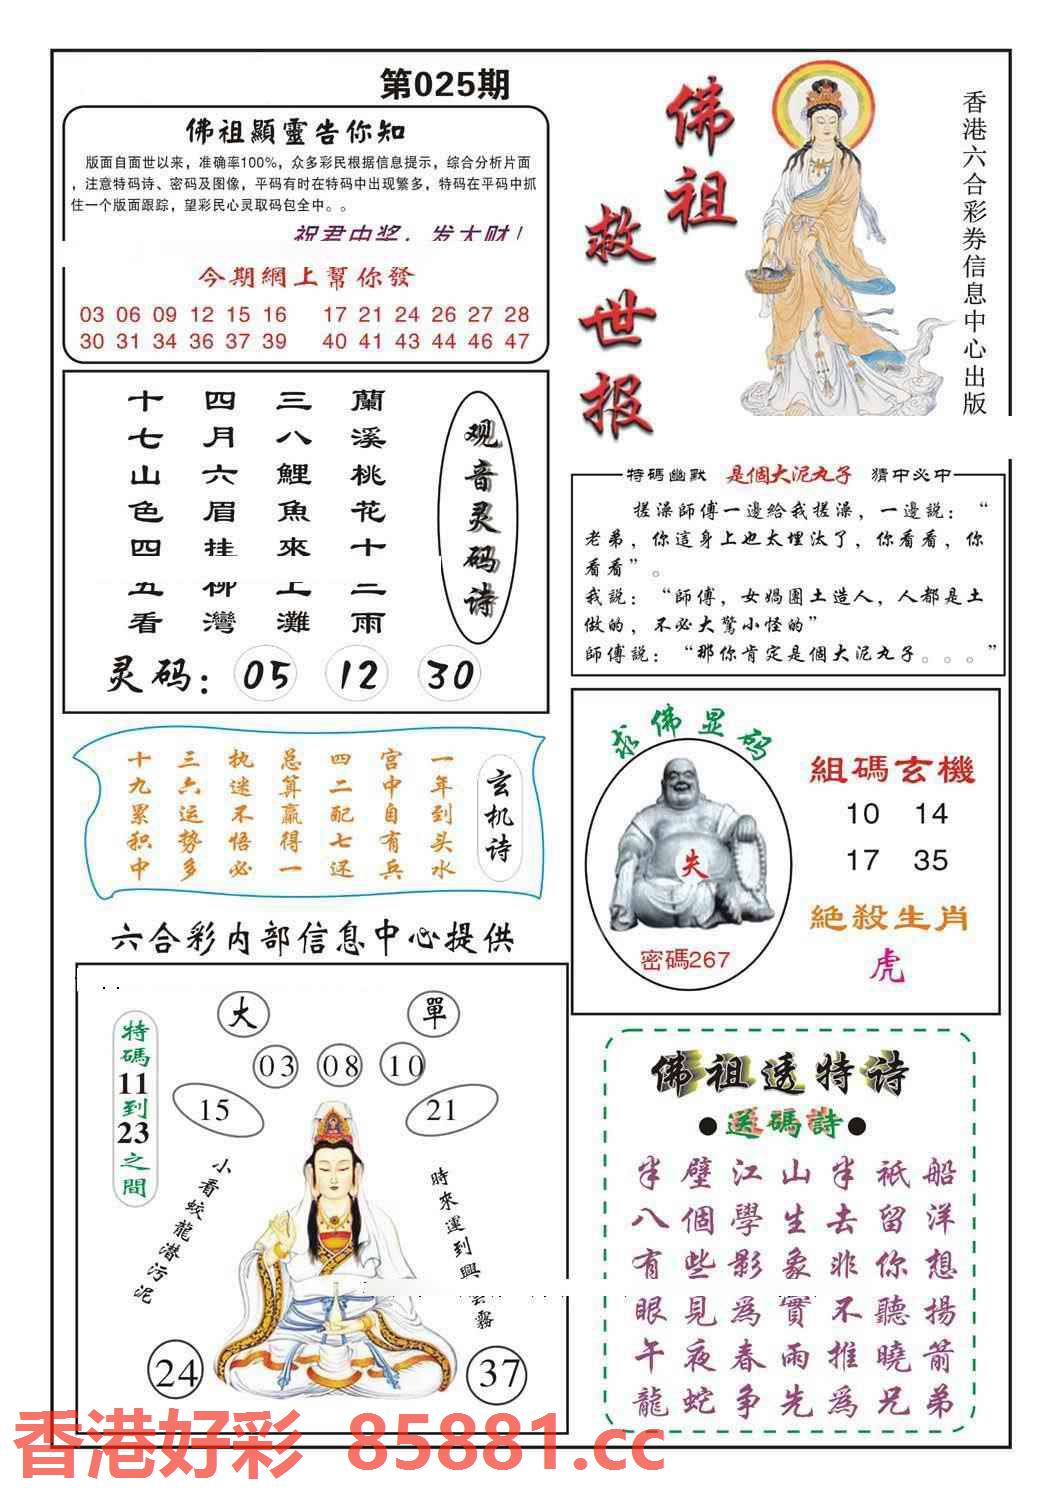 第025期
佛祖顯靈告你知
版面自面世以来，准确率100%，众多彩民根据信息提示，综合分析片面
，注意特码诗、密码及图像，平码有时在特码中出现繁多，特码在平码中抓
住一个版面跟踪，望彩民心灵取码包全中。。
祝君中奖，发大财！
今期網上幫你發
03 06 09 12 15 16 17 21 24 26 27 28
30 31 34 36 37 39 40 41 43 44 46 47
佛祖
救世报
香港六合彩券信息中心出版
观音灵码诗
蘭溪桃花十二雨
三八鯉魚來上灘
四月六眉挂柳灣
十七山色四五看
灵码：05 12 30
特碼幽默 是個大泥丸子 猜中必中
搓澡師傅一邊給我搓澡，一邊説：“
老弟，你這身上也太埋汰了，你看看，你
看看”。
我説：“師傅，女媧團土造人，人都是土
做的，不必大驚小怪的”
師傅説：“那你肯定是個大泥丸子。。。”
玄机诗
一年到头水
宫中自有兵
四二配七还
总算赢得一
执迷不悟必
三六运势多
十九累积中
求佛显码
失
密碼267
組碼玄機
10 14
17 35
絶殺生肖
虎
六合彩内部信息中心提供
特碼11到23之間
大 單
03 08 10
15 21
小看蛟龍潜污泥
時來運到興雲霧
24 37
佛祖透特诗
●送碼詩●
船洋想揚箭弟
祇留你聽曉兄
半去非不推為
山生象實雨先
江學影為春争
璧個些見夜蛇
半八有眼午龍
香港好彩 85881.cc